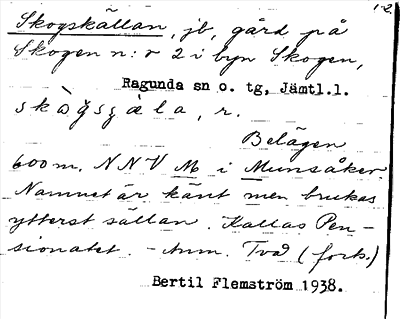 1-2.
Skogskällan, jb, gård på
Skogen n:r 2 i byn Skogen,
Ragunda sn o. tg, Jämtl.l.
Belägen
600 m. NNV M i Munsåker.
Namnet är känt men brukas
ytterst sällan. Kallas Pen-
sionatet. - Anm. Två (forts.)
Bertil Flemström 1938.